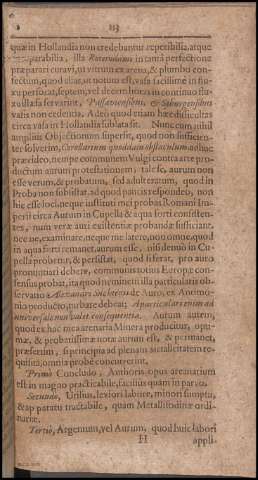 113
quæ in Hollandia non credebantur reperibilia, atque
parabilia, illa Roterodami in tantâ perfectione
præparari curavi, ut vitrum ex arena, & plumbo con-
fectum, quod alias, ut notum est, vasa facillimè in flu-
xu perforat, septem, vel decem horas in continuo flu-
xu illæsa servârit, Passaviensibus, & Ipsensibus
vasis non cedentia. Adeò quod etiam hæc difficultas
circa vasa in Hollandia sublata sit. Nunc cum nihil
amplius Objectionum supersit, quod non sufficien-
ter solverim, Corollarium quoddam obstaculum adhuc
præcideo, nempe communem Vulgi contra arte pro-
ductum aurum protestationem, tale sc, aurum non
esse verum, & probatum, sed adulteratum, quod in
Proba non subsistat, ad quod paucis respondeo, non
hîc esse loci, neque instituti mei probas Romani Im-
perii circa Aurum in Cupella & aqua forti consisten-
tes, num veræ auri existentiæ probandæ sufficiant,
nec ne, examinare, neque me latere, non omne, quod
in aqua forti remanet, aurum esse, si is denuò in Cu-
pella probetur, & persistat, quod si ferat, pro auro
pronuntiari debere, communis totius Europæ con-
sensus probat, ita quod neminem illa particularis ob-
servatio Alexandri Suchtenii de Auro, ex Antimo-
nio producto, turbare debeat; A particulari enim ad
universale non valet consequentia. Aurum autem,
quod ex hac mea arenaria Minera producitur, opti-
mæ, & probatissimæ notæ aurum est, & permanet,
præsertim, si principia ad plenam metallicitatem re-
quisita, omnia probè concurrerint.
Primò Concludo, Authoris opus arenarium
est in magno practicabile, facilius quàm in parvo.
Secundò, Utilius, leviori labore, minori sumptu,
& apparatu tractabile, quàm Metallifodinæ ordi-
nariæ.
Tertiò, Argentum, vel Aurum, quod huic labori
H appli-